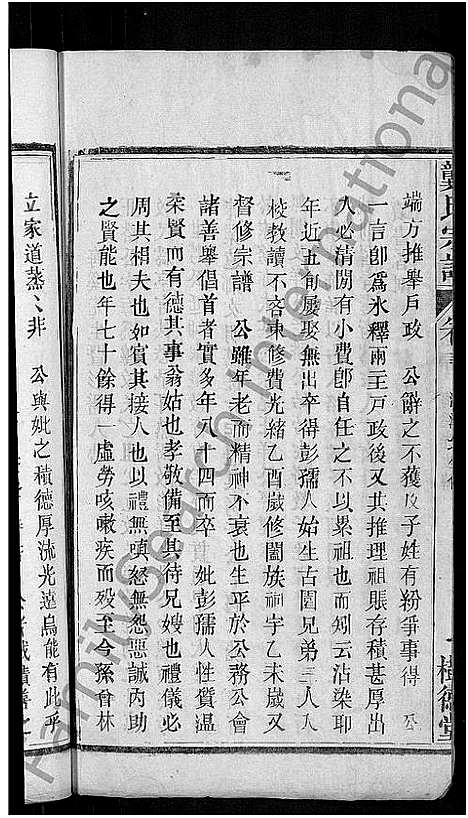 龔氏宗譜
樹德堂
端方推舉戶政 公辭之不獲及子姓有紛爭事得 公
一言即為氷釋兩主戶政後又其推理祖賬存積甚厚出
入必清閒有小費卽自任之不以累祖也而矧云沾染耶
年近五旬屢娶無出卒得彭孺人始生古園兄弟三人入
校教讀不吝束修費光緒乙酉歲修闔族祠宇乙未歲又
督修宗譜 公雖年老而精神不衰也生平於公務公會
諸善舉倡首者實多年八十四而卒 妣彭孺人性質溫
柔賢而有德其事翁姑也孝敬備至其待兄嫂也禮儀必
周其相夫也如賓其接人也以禮無嗔怒無怨惡誠內助
之賢能也年七十餘得一虛勞咳嗽疾而歿至今孫曾林
立家道蒸〻非 公與妣之積德厚流光遠烏能有此乎
FamilySearch International